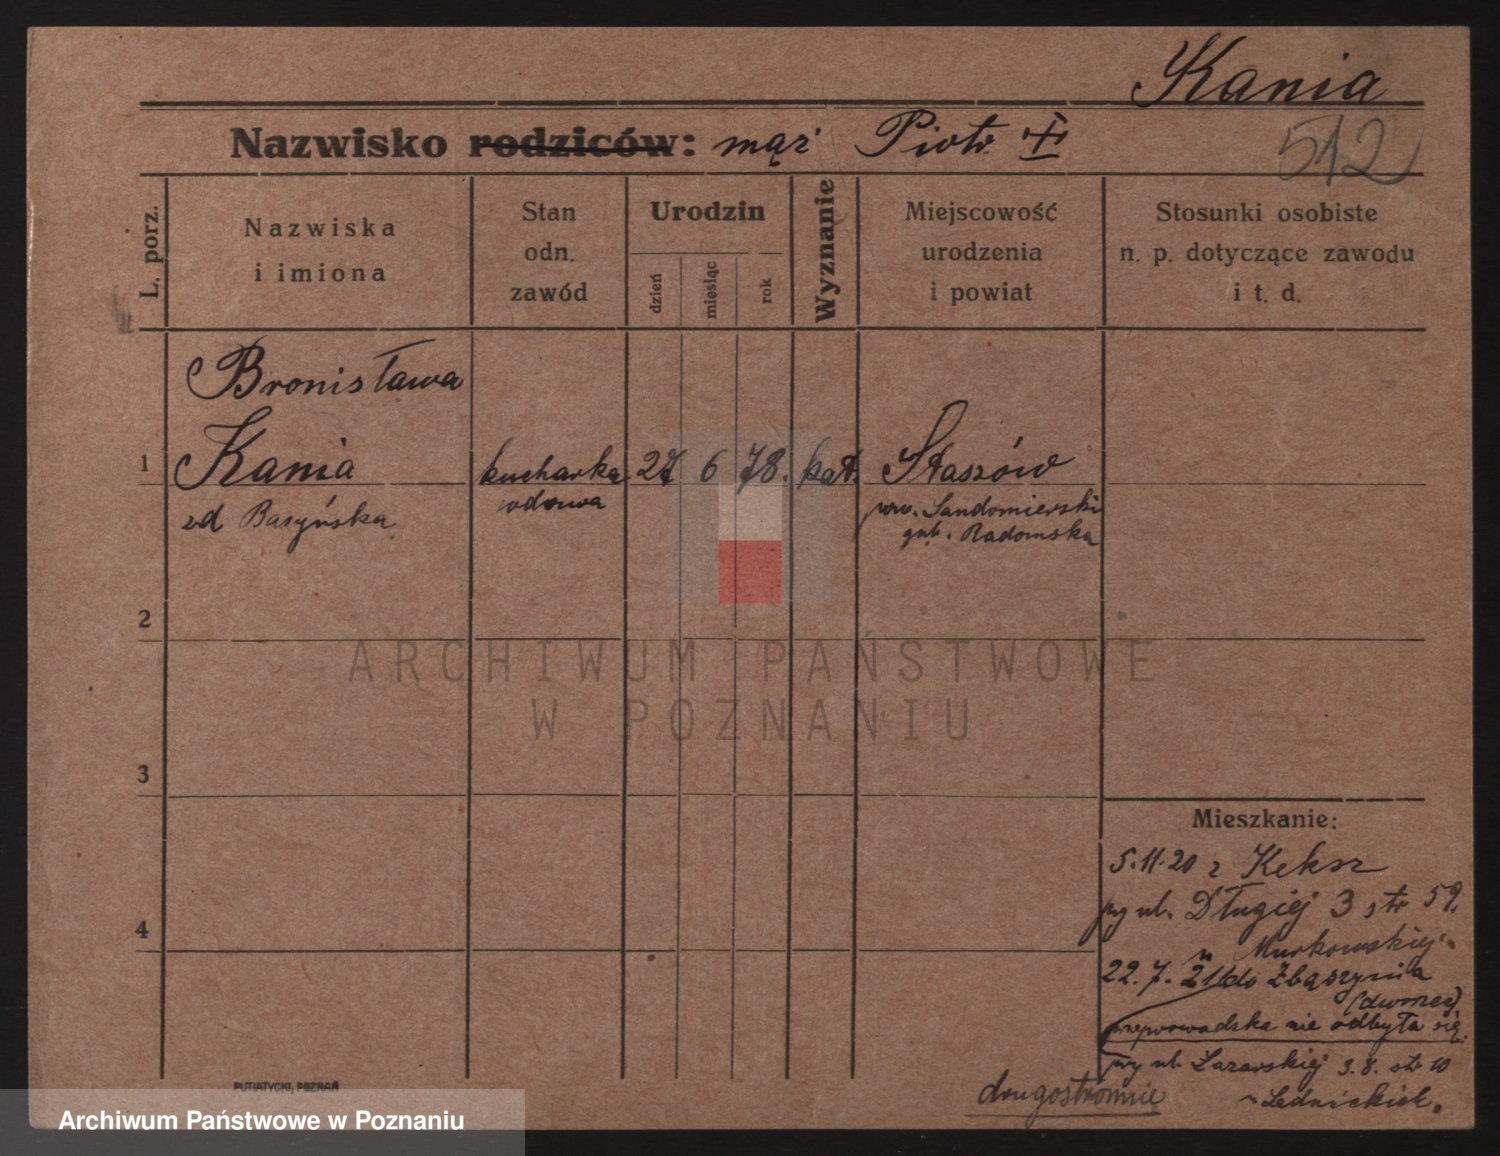 Kania
Nazwisko rodziców: mąż Piotr
512
L. porz.
Nazwiska
i imiona
Stan
odn.
zawód
Urodzin
dzień
miesiąc
rok
Wyznanie
Miejscowość
urodzenia
i powiat
Stosunki osobiste
n. p. dotyczące zawodu
i t. d.
Bronisława
1 Kania kucharka 27 6 78. kat. Staszów
zd Basyńska wdowa pow. Sandomierski
gub. Radomska
2
ARCHIWUM PAŃSTWOWE
W POZNANIU
3
Mieszkanie:
5.11.20 z Keksz
przy ul. Długiej 3 str 59.
u Murkowskiej
4
22.7.21 do Zbąszynia
(dworzec)
przeprowadzka nie odbyła się.
przy ul. Łazarskiej 3.8. str 10
u Lednickich.
drugostronnie
PUTIATYCKI, POZNAŃ
Archiwum Państwowe w Poznaniu